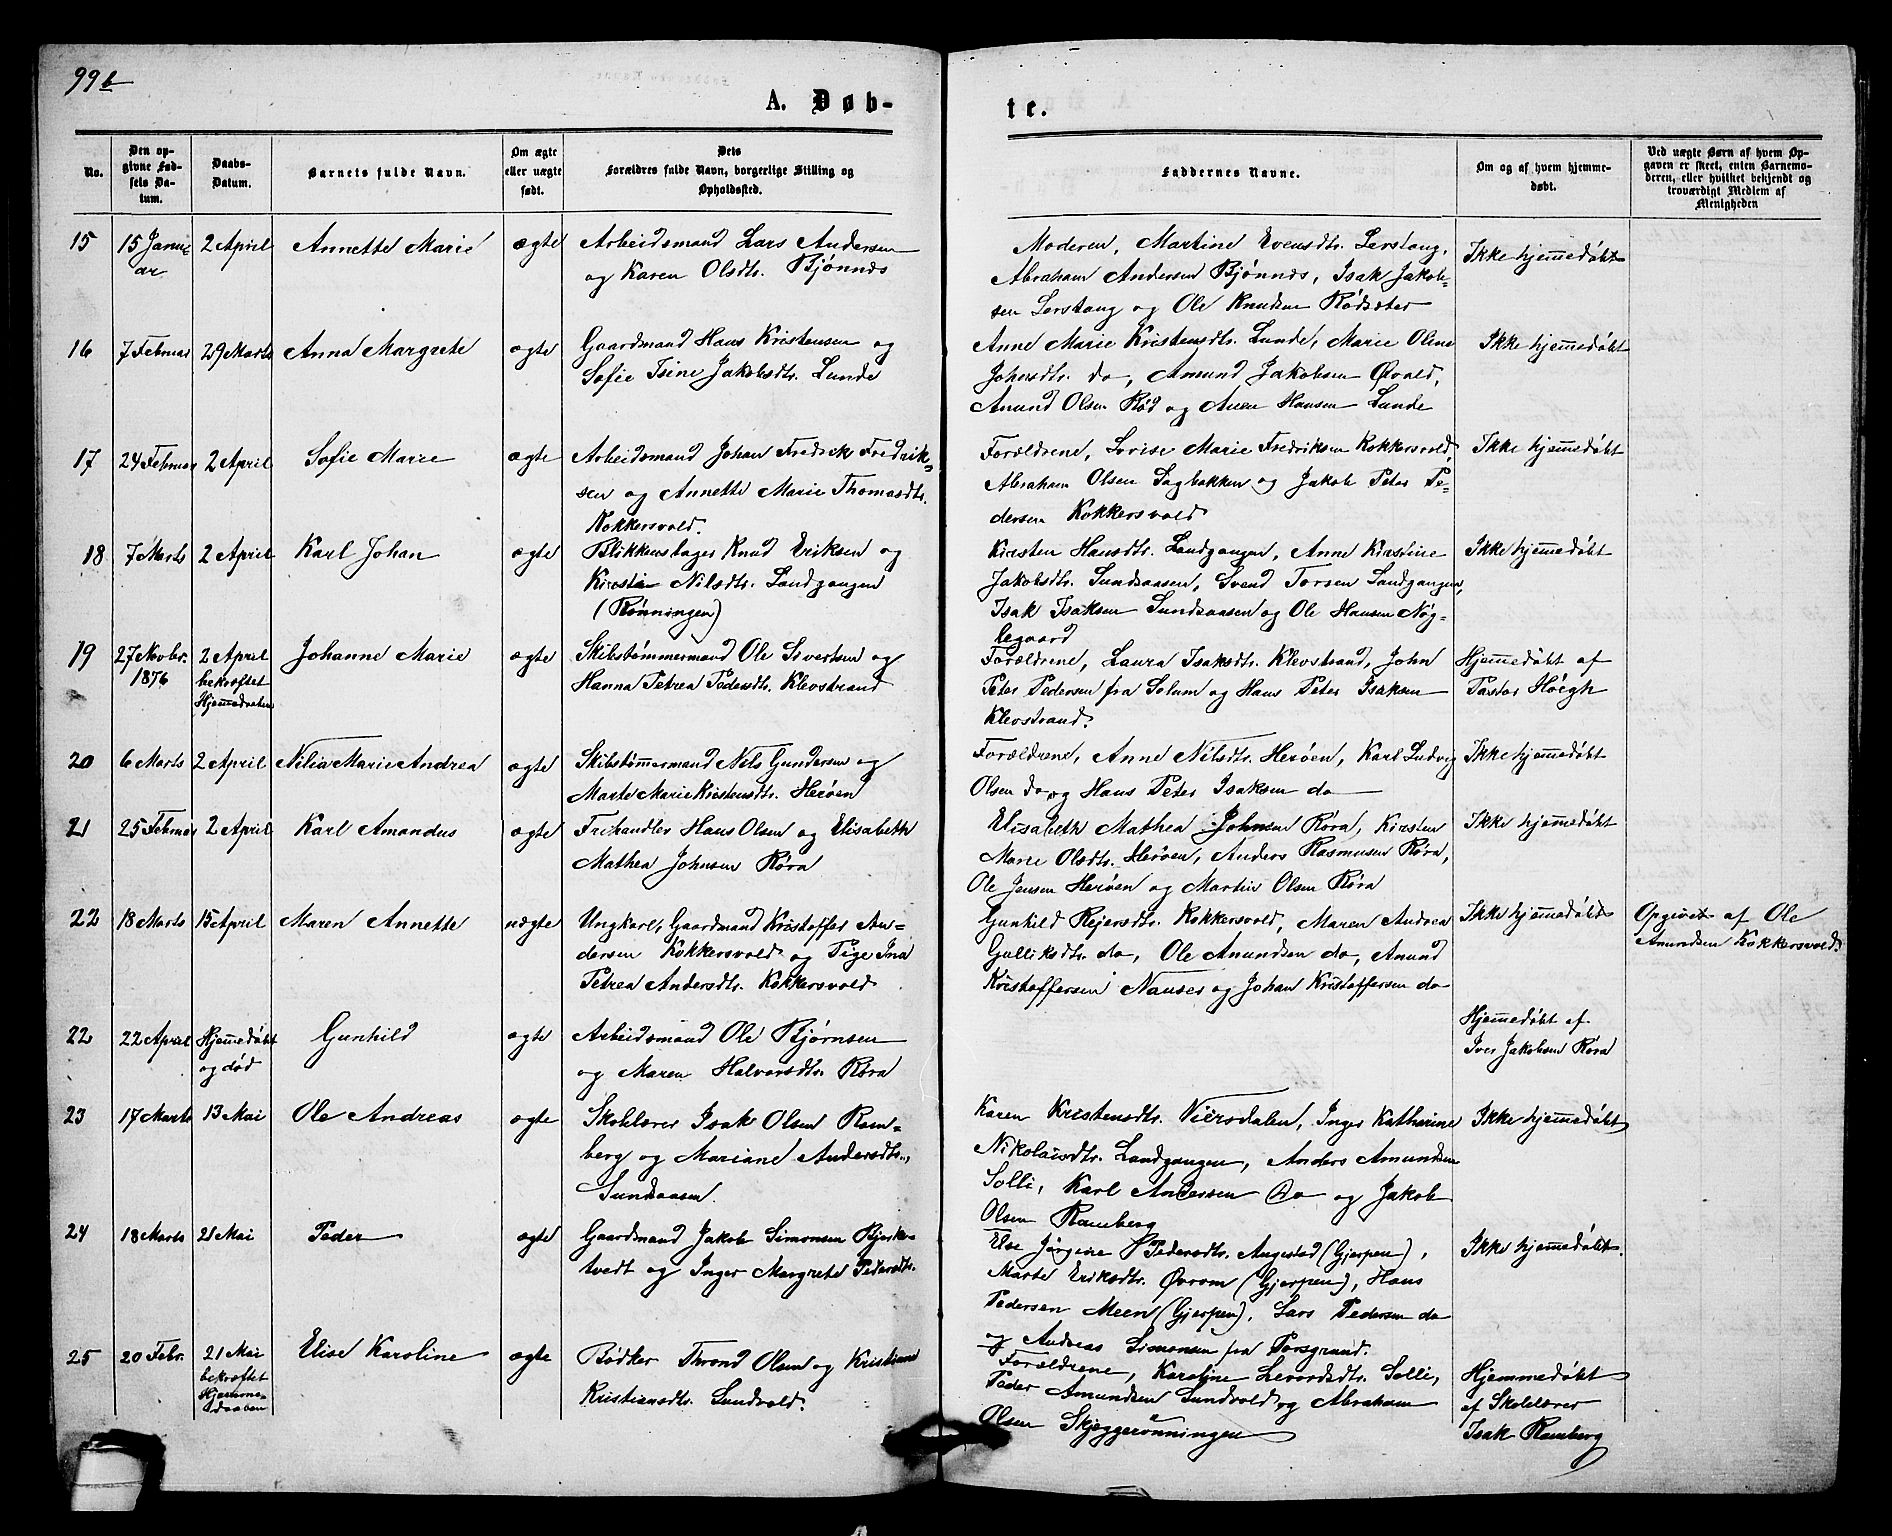 99b
A. Døb-
te.
No.
Den op-
givne Fød-
sels Da-
tum.
Daabs-
Datum.
Barnets fulde Navn.
Om ægte
eller uægte
født.
Dets
Forældres fulde Navn, borgerlige Stilling og
Opholdssted.
Faddernes Navne.
Om og af hvem hjemme-
døbt.
Ved uægte Børn af hvem Op-
gaven er skeet, enten Barnemo-
deren, eller hvilket bekjendt og
troværdigt Medlem af
Menigheden
15
15 Janu-
ar
2 April
Annette Marie
ægte
Arbeidsmand Lars Andersen
og Karen Olsdtr. Bjønnes
Moderen, Martine Evensdtr. Lerstang,
Abraham Andersen Bjønnes, Isak Jakob-
sen Lerstang og Ole Knudsen Rødseter
Ikke hjemmedøbt
16
7 Februar
29 Marts
Anna Margrete
ægte
Gaardmand Hans Kristensen og
Sofie Tsine Jakobsdtr. Lunde
Anne Marie Kristensdtr. Lunde, Marie Oline
Johersdtr. do, Amund Jakobsen Øvald,
Anund Olsen Rød og Aren Hansen Lunde
Ikke hjemmedøbt
17
24 Februar
2 April
Sofie Marie
ægte
Arbeidsmand Johan Fredrik Fredrik-
sen og Annette Marie Thomasdtr.
Kokkersvold.
Forældrene, Lovise Marie Fredriksen Kokkersvold,
Abraham Olsen Sagbakken og Jakob Peter Pe-
dersen Kokkersvold
Ikke hjemmedøbt
18
7 Marts
2 April
Karl Johan
ægte
Blikkenslager Knud Eriksen og
Kirstine Nilsdtr. Landgangen
(Rønningen)
Kirsten Hansdtr. Landgangen, Anne Kirstine
Jakobsdtr. Sundsaasen, Svend Torsen Landgangen,
Isak Isaksen Sundsaasen og Ole Hansen Nøg-
legaard
Ikke hjemmedøbt
19
27 Novbr.
1876
2 April
bekræftet
Hjemmedaaben
Johanne Marie
ægte
Skibstømmermand Ole Sivertsen og
Hanna Petrea Pedersdtr. Klevstrand
Forældrene, Laura Isaksdtr. Klevstrand, John
Peter Pedersen fra Solum og Hans Peter Isaksen
Klevstrand.
Hjemmedøbt af
Pastor Høegh
20
6 Marts
2 April
Nilia Marie Andrea
ægte
Skibstømmermand Nils Gundersen og
Marte Marie Kirstensdtr. Herøen
Forældrene, Anne Nilsdtr. Herøen, Karl Ludvig
Olsen do, og Hans Peter Isaksen do
Ikke hjemmedøbt
21
25 Februar
2 April
Karl Amandus
ægte
Frihandler Hans Olsen og Elisabeth
Mathea Johnsen Røra
Elisabeth Mathea Johnsen Røra, Kirsten
Marie Olsdtr. Herøen, Anders Rasmusen Røra,
Ole Jensen Herøen og Martin Olsen Røra
Ikke hjemmedøbt
22
18 Marts
15 April
Maren Annette
uægte
Ungkarl, Gaardmand Kristoffer An-
dersen Kokkersvold og Pige Ina
Petrea Andersdtr. Kokkersvold
Gunhild Rejersdtr. Kokkersvold, Maren Andrea
Gulliksdtr. do, Ole Amundsen do, Amund
Kristoffersen Nauses og Johan Kristoffersen do
Ikke hjemmedøbt
Opgivet af Ole
Amundsen Kokkersvold.
22
22 April
Hjemmedøbt
og død
Gunhild
ægte
Arbeidsmand Ole Bjørnsen
og Maren Halvorsdtr. Røra
Hjemmedøbt af
Iver Jakobsen Røra
23
17 Marts
13 Mai
Ole Andreas
ægte
Skolelærer Isak Olsen Ram-
berg og Mariane Andersdtr.,
Sundsaasen.
Karen Kristensdtr. Viersdalen, Inger Katharine
Nikolaisdtr. Landgangen, Anders Amundsen
Solli, Karl Andersen do og Jakob
Olsen Ramberg
Ikke hjemmedøbt
24
18 Marts
21 Mai
Peder
ægte
Gaardmand Jakob Simonsen Bjerke-
tvedt og Inger Margrete Pedersdtr.
Else Jørgine Pedersdtr. Augestad (Gjerpen),
Marte Eriksdtr. Øvrom (Gjerpen), Hans
Pedersen Meen (Gjerpen), Lars Pedersen do
og Andreas Simonsen fra Porsgrund.
Ikke hjemmedøbt.
25
20 Febr.
21 Mai
bekræftet
Hjemme-
daaben
Elise Karoline
ægte
Bødker Thrond Olsen og Kristiane
Kristiansdtr. Sundvold.
Forældrene, Karoline Levordsdtr. Solli,
Peder Amundsen Sundvold og Abraham
Olsen Skjeggerønningen
Hjemmedøbt
af Skolelærer
Isak Ramberg